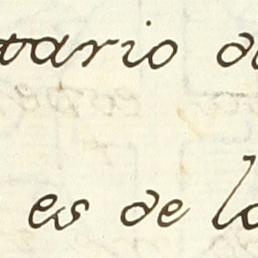 tario d
es de lo